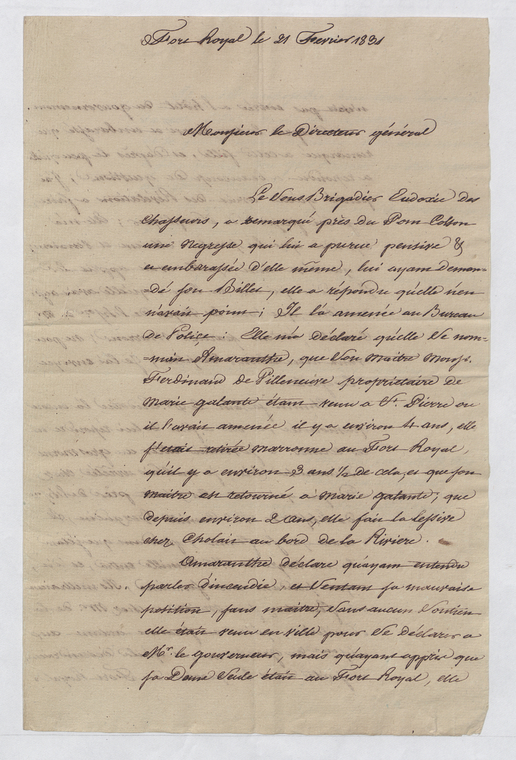 Fort Royal le 21 Fevrier 1831
Monsieur le Directeur général
Le Sous Brigadier Eudoxie des
chasseurs, a remarqué près du Pont Cotton
une negresse qui lui a parue pensive &
embarassée d'elle même, lui ayant deman-
dé son Billet, elle a répondu qu'elle n'en
n'avait point; Il l'a amenée au Bureau
de Police; Elle m'a déclaré qu'elle se nom-
mait Amaranthe, que son maitre Mons.
Ferdinand de Villeneuve proprietaire de
Marie galante étant venu a St. Pierre ou
il l'avait amenée il y a environ 4 ans, elle
s'etait retirée marronne au Fort Royal,
qu'il y a environ 3 ans ½ de cela, et que son
maitre est retourné a Marie galante, que
depuis environ 2 ans, elle fait la lessive
chez Cholais au bord de la Riviere.
Amaranthe déclare qu'ayant entendu
parler d'incendie et sentant sa mauvaise
position, sans maitre, sans aucun soutien
elle était venu en ville pour se déclarer a
Mr. le gouverneur, mais qu'ayant appris que
sa Dame seule était au Fort Royal, elle